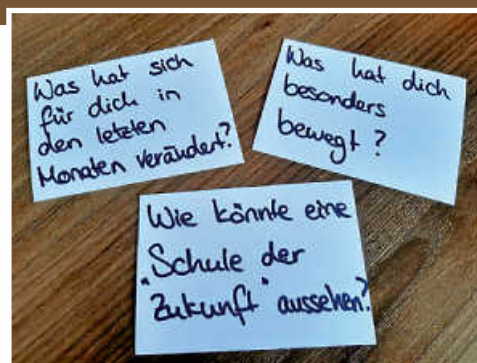 Was hat sich
für dich in
den letzten
Monaten verändert?
Was hat dich
besonders
bewegt?
Wie könnte eine
"Schule der
Zukunft" aussehen?